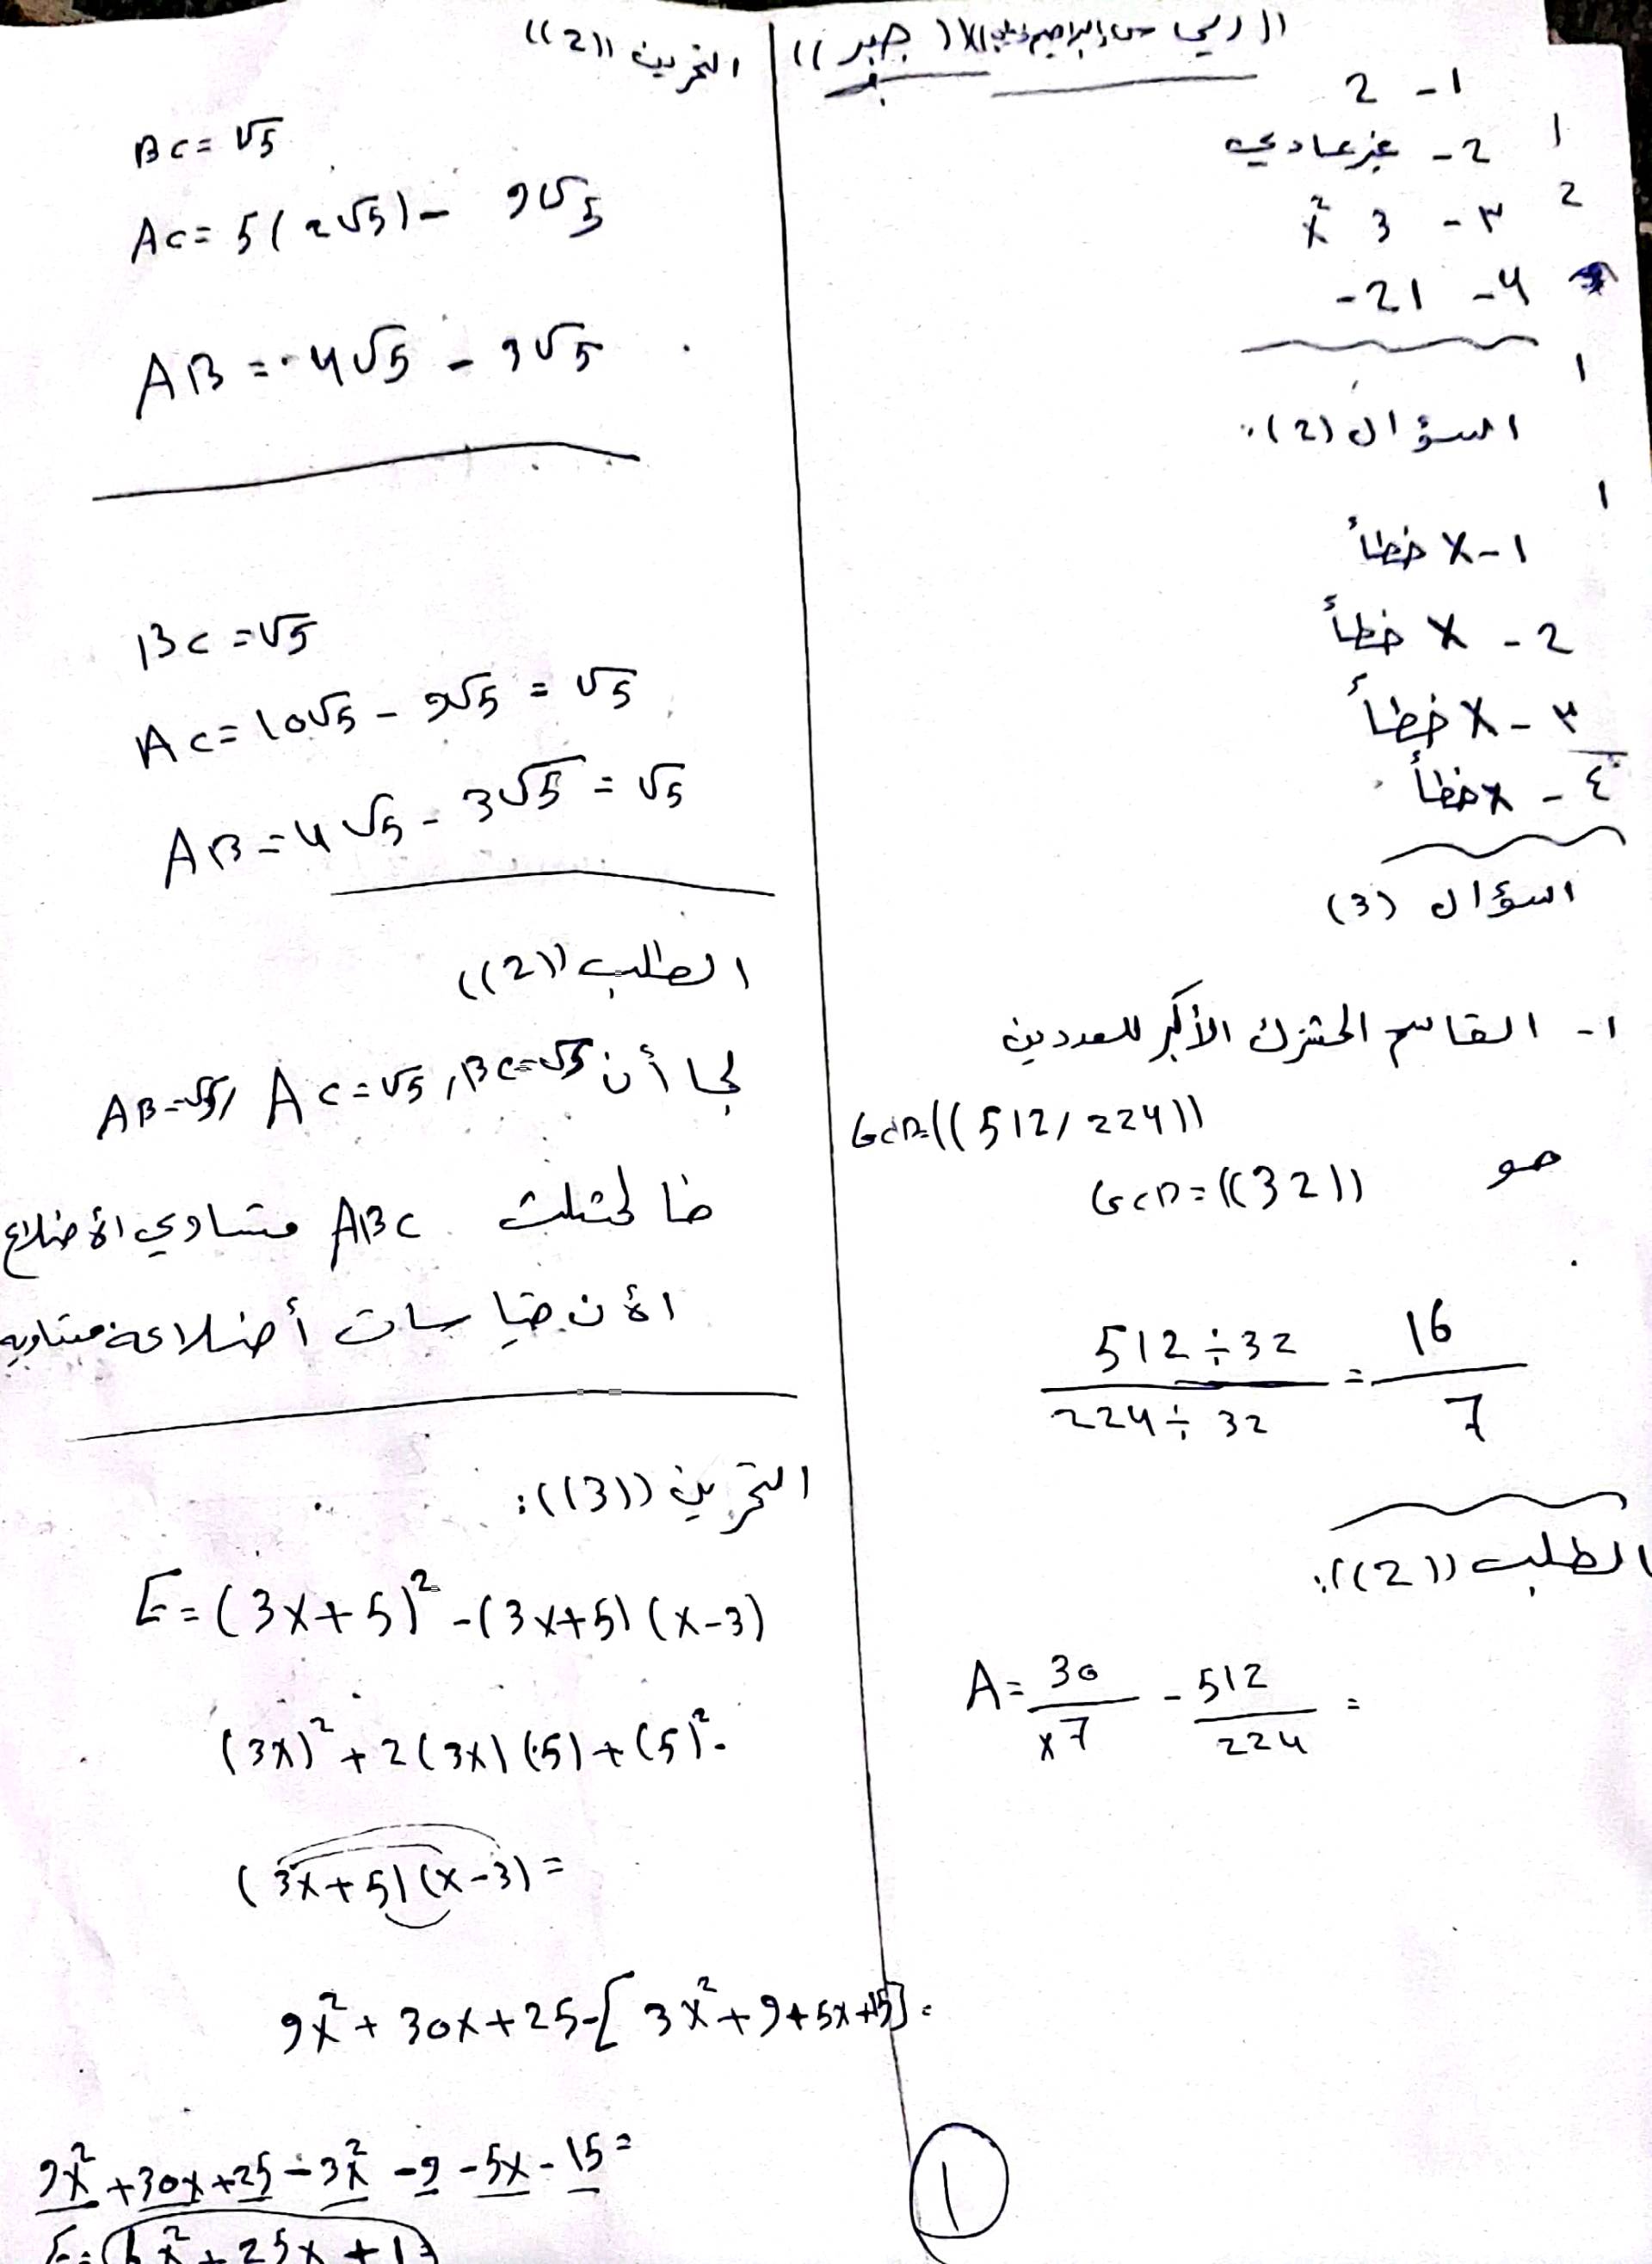 (( جبر ))
1 - 2
2 - غير عادي
٣ - 3 x²
4 - -21
السؤال (2):
1 - X خطأ
2 - X خطأ
٣ - X خطأ
٤ - X خطأ
السؤال (3)
1 - القاسم المشترك الأكبر للعددين
GCD=((512, 224))
هو GCD=((32))
512÷32 / 224÷32 = 16 / 7
الطلب ((2)):
A= 30 / x7 - 512 / 224 =
1
التمرين ((2))
BC= √5
AC= 5(2√5)- 9√5
AB = 4√5 - 3√5
BC =√5
AC= 10√5 - 9√5 = √5
AB = 4√5 - 3√5 = √5
الطلب ((2))
بما أن BC=√5, AC=√5, AB=√5
فالمثلث ABC متساوي الأضلاع
لأن قياسات أضلاعه متساويه
التمرين ((3)):
E=(3x+5)²-(3x+5)(x-3)
(3x)²+2(3x)(5)+(5)².
(3x+5)(x-3)=
9x²+30x+25-[3x²+9+5x+15]=
9x²+30x+25-3x²-9-5x-15=